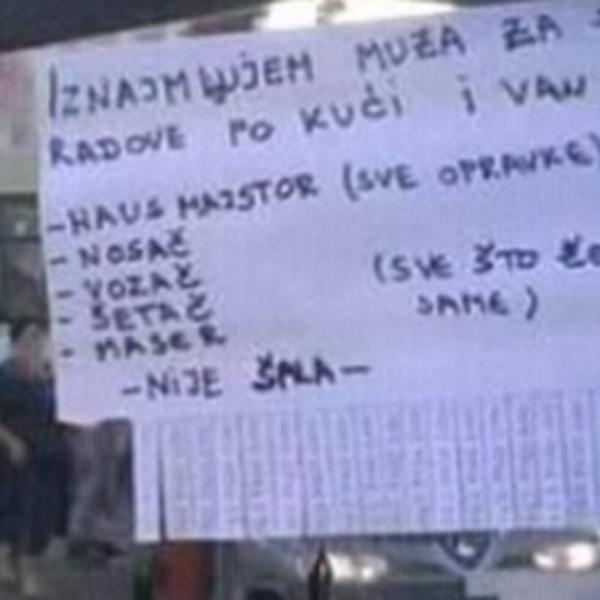 IZNAJMLJUJEM MUŽA ZA
RADOVE PO KUĆI I VAN
-HAUS MAJSTOR (SVE OPRAVKE)
-NOSAČ
-VOZAČ
-ŠETAČ
-MASER
(SVE ŠTO
SAME)
-NIJE ŠALA-